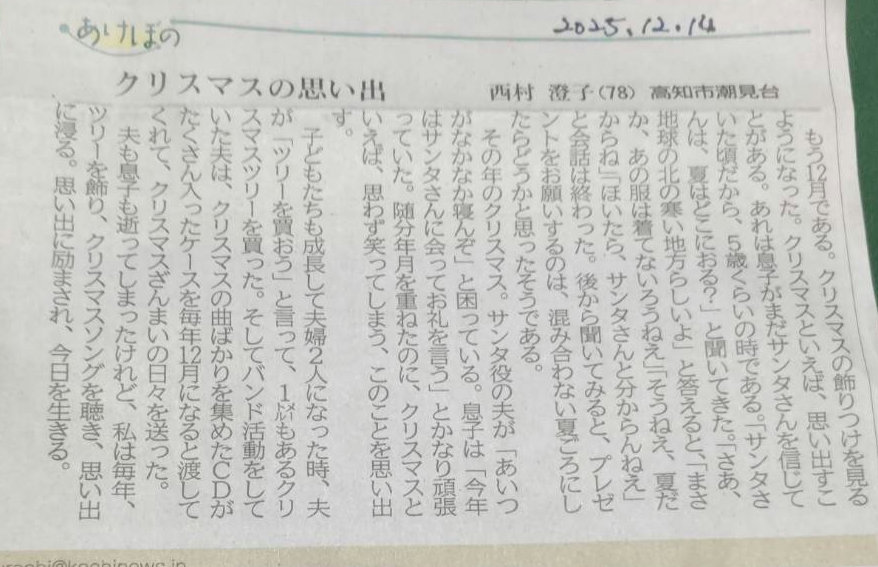 あけぼの
2025.12.14
クリスマスの思い出
西村 澄子(78) 高知市潮見台
もう12月である。クリスマスの飾りつけを見る
ようになった。クリスマスといえば、思い出すこ
とがある。あれは息子がまだサンタさんを信じて
いた頃だから、5歳くらいの時である。「サンタさ
んは、夏はどこにおる?」と聞いてきた。「さあ、
地球の北の寒い地方らしいよ」と答えると、「まさ
か、あの服は着てないろうねえ」「そうねえ、夏だ
からね」「ほいたら、サンタさんと分からんねえ」
と会話は終わった。後から聞いてみると、プレゼ
ントをお願いするのは、混み合わない夏ごろにし
たらどうかと思ったそうである。
その年のクリスマス。サンタ役の夫が「あいつ
がなかなか寝んぞ」と困っている。息子は「今年
はサンタさんに会ってお礼を言う」とかなり頑張
っていた。随分年月を重ねたのに、クリスマスと
いえば、思わず笑ってしまう、このことを思い出
す。
子どもたちも成長して夫婦2人になった時、夫
が「ツリーを買おう」と言って、1㍍もあるクリ
スマスツリーを買った。そしてバンド活動をして
いた夫は、クリスマスの曲ばかりを集めたCDが
たくさん入ったケースを毎年12月になると渡して
くれて、クリスマスざんまいの日々を送った。
夫も息子も逝ってしまったけれど、私は毎年、
ツリーを飾り、クリスマスソングを聴き、思い出
に浸る。思い出に励まされ、今日を生きる。
@kochinews.jp